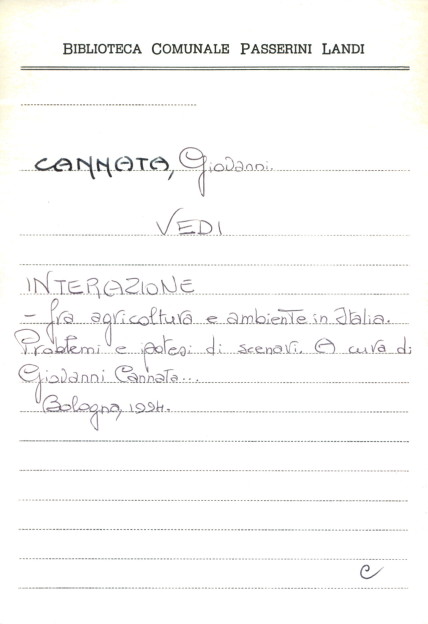 BIBLIOTECA COMUNALE PASSERINI LANDI
CANNATA, Giovanni.
VEDI
INTERAZIONE
- fra agricoltura e ambiente in Italia.
Problemi e ipotesi di scenari. A cura di
Giovanni Cannata...
Bologna, 1994.
C